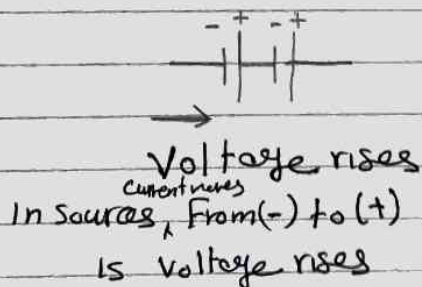 - + - +
Voltage rises
In Sources, current moves From (-) to (+)
is voltage rises